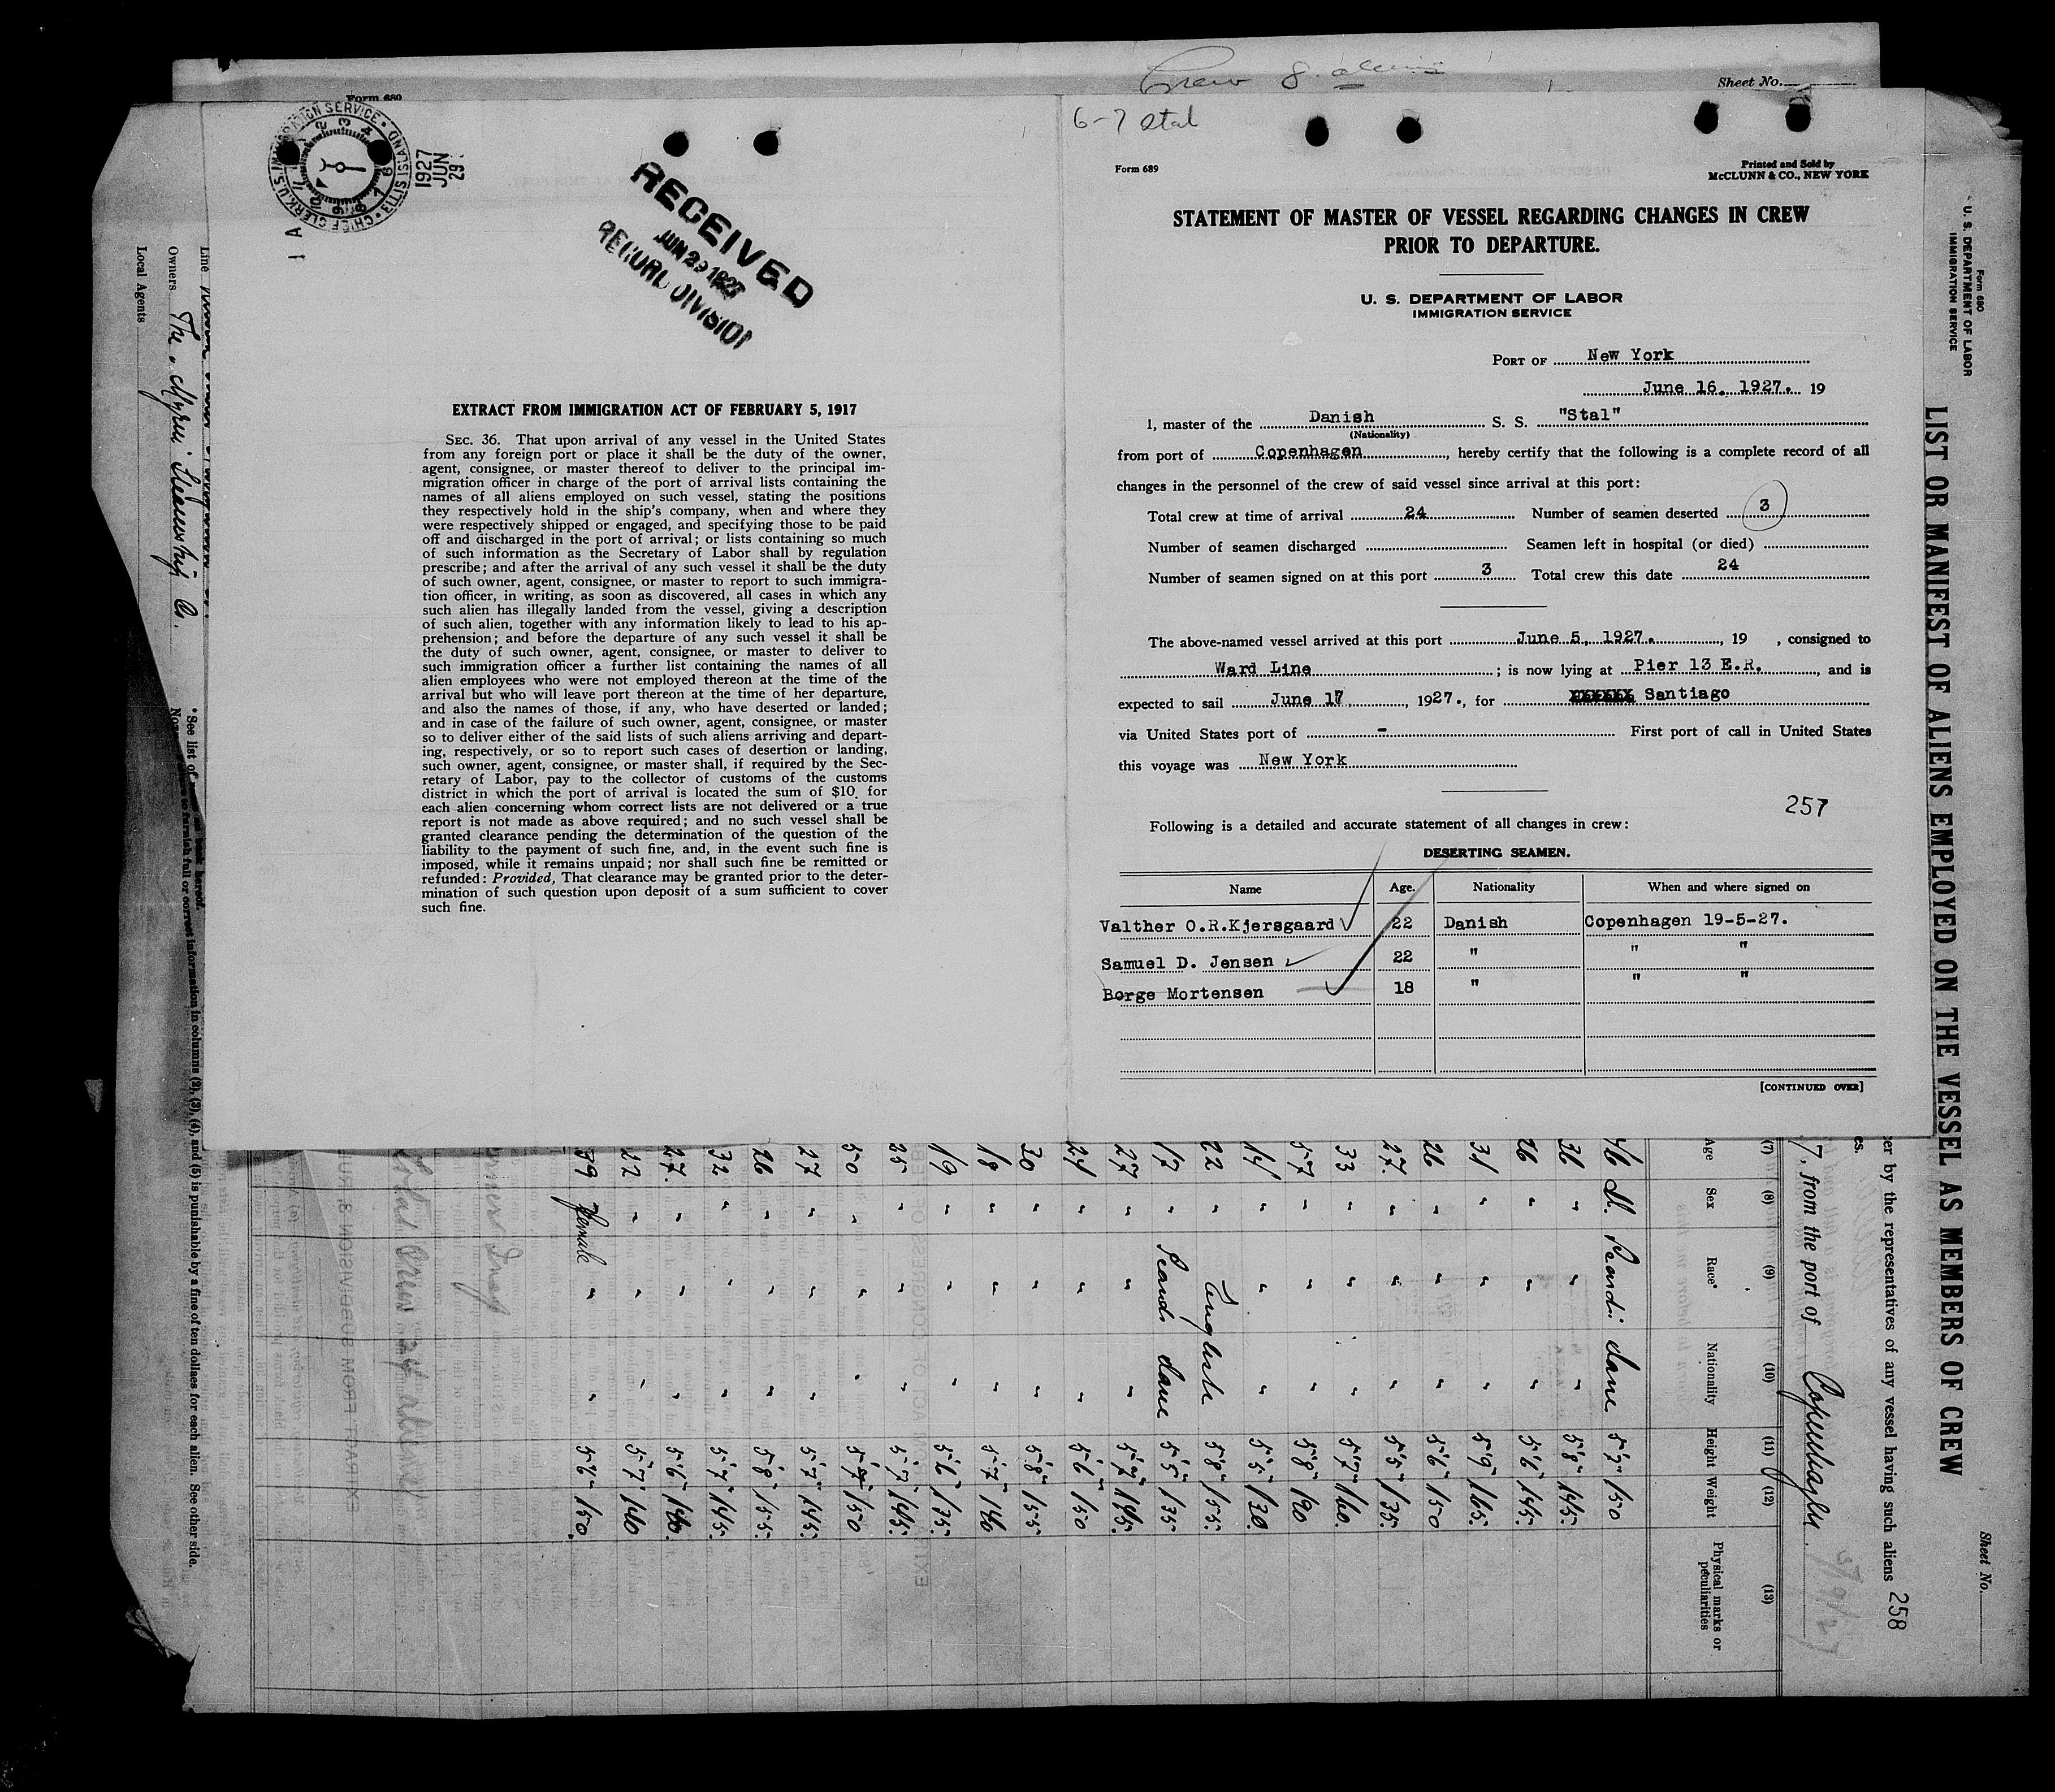 Crew 8 aliens
Sheet No.
Form 680
IMMIGRATION SERVICE
CHIEF CLERK U.S.
ELLIS ISLAND
1927
JUN
29
RECEIVED
JUN 29 1927
RECORD DIVISION
EXTRACT FROM IMMIGRATION ACT OF FEBRUARY 5, 1917
SEC. 36. That upon arrival of any vessel in the United States
from any foreign port or place it shall be the duty of the owner,
agent, consignee, or master thereof to deliver to the principal im-
migration officer in charge of the port of arrival lists containing the
names of all aliens employed on such vessel, stating the positions
they respectively hold in the ship's company, when and where they
were respectively shipped or engaged, and specifying those to be paid
off and discharged in the port of arrival; or lists containing so much
of such information as the Secretary of Labor shall by regulation
prescribe; and after the arrival of any such vessel it shall be the duty
of such owner, agent, consignee, or master to report to such immigra-
tion officer, in writing, as soon as discovered, all cases in which any
such alien has illegally landed from the vessel, giving a description
of such alien, together with any information likely to lead to his ap-
prehension; and before the departure of any such vessel it shall be
the duty of such owner, agent, consignee, or master to deliver to
such immigration officer a further list containing the names of all
alien employees who were not employed thereon at the time of the
arrival but who will leave port thereon at the time of her departure,
and also the names of those, if any, who have deserted or landed;
and in case of the failure of such owner, agent, consignee, or master
so to deliver either of the said lists of such aliens arriving and depart-
ing, respectively, or so to report such cases of desertion or landing,
such owner, agent, consignee, or master shall, if required by the Sec-
retary of Labor, pay to the collector of customs of the customs
district in which the port of arrival is located the sum of $10. for
each alien concerning whom correct lists are not delivered or a true
report is not made as above required; and no such vessel shall be
granted clearance pending the determination of the question of the
liability to the payment of such fine, and, in the event such fine is
imposed, while it remains unpaid; nor shall such fine be remitted or
refunded: Provided, That clearance may be granted prior to the deter-
mination of such question upon deposit of a sum sufficient to cover
such fine.
6-7 Stal
Form 689
Printed and Sold by
McCLUNN & CO., NEW YORK
STATEMENT OF MASTER OF VESSEL REGARDING CHANGES IN CREW
PRIOR TO DEPARTURE.
U. S. DEPARTMENT OF LABOR
IMMIGRATION SERVICE
PORT OF New York
June 16, 1927. 19
I, master of the Danish S. S. "Stal"
(Nationality)
from port of Copenhagen, hereby certify that the following is a complete record of all
changes in the personnel of the crew of said vessel since arrival at this port:
Total crew at time of arrival 24 Number of seamen deserted 3
Number of seamen discharged Seamen left in hospital (or died)
Number of seamen signed on at this port 3 Total crew this date 24
The above-named vessel arrived at this port June 5, 1927. , 19 , consigned to
Ward Line ; is now lying at Pier 13 E.R. , and is
expected to sail June 17 , 1927. , for Santiago
via United States port of - First port of call in United States
this voyage was New York
257
Following is a detailed and accurate statement of all changes in crew:
DESERTING SEAMEN.
Name Age. Nationality When and where signed on
Valther O.R.Kjersgaard 22 Danish Copenhagen 19-5-27.
Samuel D. Jensen 22 " " "
Borge Mortensen 18 " " "
[CONTINUED OVER]
Form 680
U. S. DEPARTMENT OF LABOR
IMMIGRATION SERVICE
Sheet No.
LIST OR MANIFEST OF ALIENS EMPLOYED ON THE VESSEL AS MEMBERS OF CREW
er by the representatives of any vessel having such aliens
258
es.
7, from the port of Copenhagen
(7) (8) (9) (10) (11) (12) (13)
Age Sex Race* Nationality Height Weight Physical marks or peculiarities
46 M. Scandi Dane 5'7" 150
36 " " " 5'8" 145.
26 " " " 5'6" 145.
31 " " " 5'9" 165.
26 " " " 5'6" 150
27. " " " 5'5" 135.
33 " " " 5'7" 160.
57 " " " 5'8" 190
" " " 5'5" 130.
22 " English 5'8" 155.
17 " Scandi Dane 5'5" 135
27 " " " 5'7" 145.
24 " " " 5'6" 150
30 " " " 5'8" 155
18 " " " 5'7" 140
19 " " " 5'6" 135.
25 " " " 5'7" 145.
50 " " " 5'7" 150
27 " " " 5'7" 145.
26 " " " 5'8" 155.
32 " " " 5'7" 145.
27. " " " 5'6" 140.
22 " " " 5'7" 140
39 Female " " 5'6" 150.
Line
Owners The Myren Steamship Co.
Local Agents
*See list of
to furnish full or correct information in columns (2), (3), (4), and (5) is punishable by a fine of ten dollars for each alien. See other side.